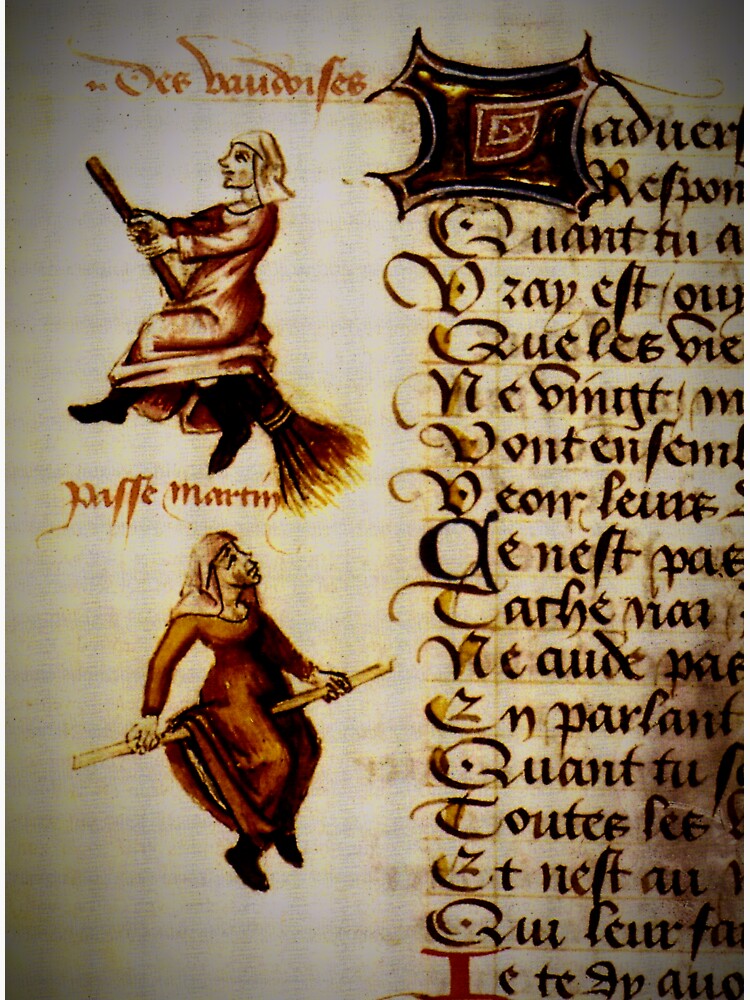 Des vaudoises
passe martin
Ladvers
Respon
Quant tu a
Vray est / ouy
Que les vie
Ne vingt / m
Vont ensembl
Veoir leurs d
Ce nest pas
Tache nar
Ne cuide pas
En parlant
Quant tu s
Toutes les v
Et nest au
Qui leur fa
Ie te dy auo